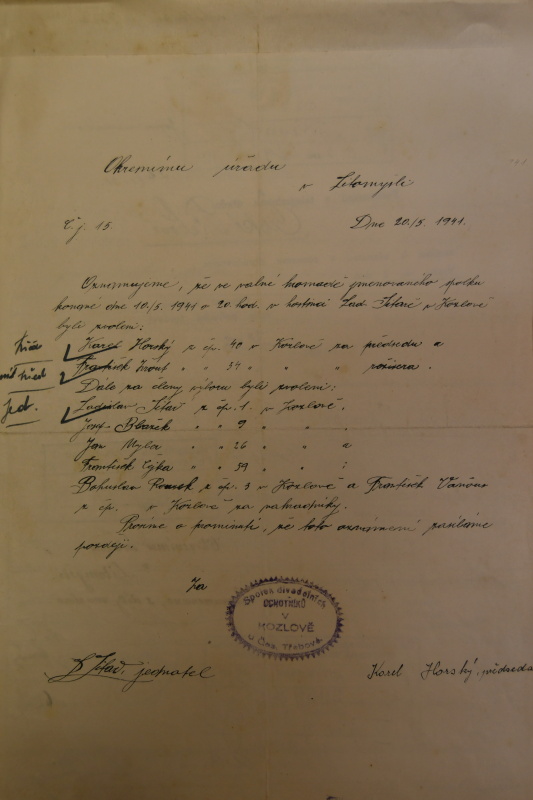 Okresnímu úřadu
v Litomyšli
Č.j. 15.
Dne 20./5. 1941.
Oznamujeme, že ve valné hromadě jmenovaného spolku
konané dne 10./5. 1941 o 20. hod. v hostinci Lad. v Kozlově
byli zvoleni:
Karel Horský z čp. 40 v Kozlově za předsedu a
František " " 34 " " " režisera.
Dále za členy výboru byli zvoleni:
Ladislav z čp. 1. v Kozlově.
Josef Blažek " " 9 " " .
Jan " " 26 " " a
František " " 59 " " :
Bohuslav z čp. 3 v Kozlově a František
z čp. v Kozlově za náhradníky.
Prosíme o prominutí, že toto oznámení zasíláme
později.
Za
Spolek divadelních
OCHOTNÍKŮ
V
KOZLOVĚ
u Čes. Třebové.
jednatel
Karel Horský, předseda
jed.